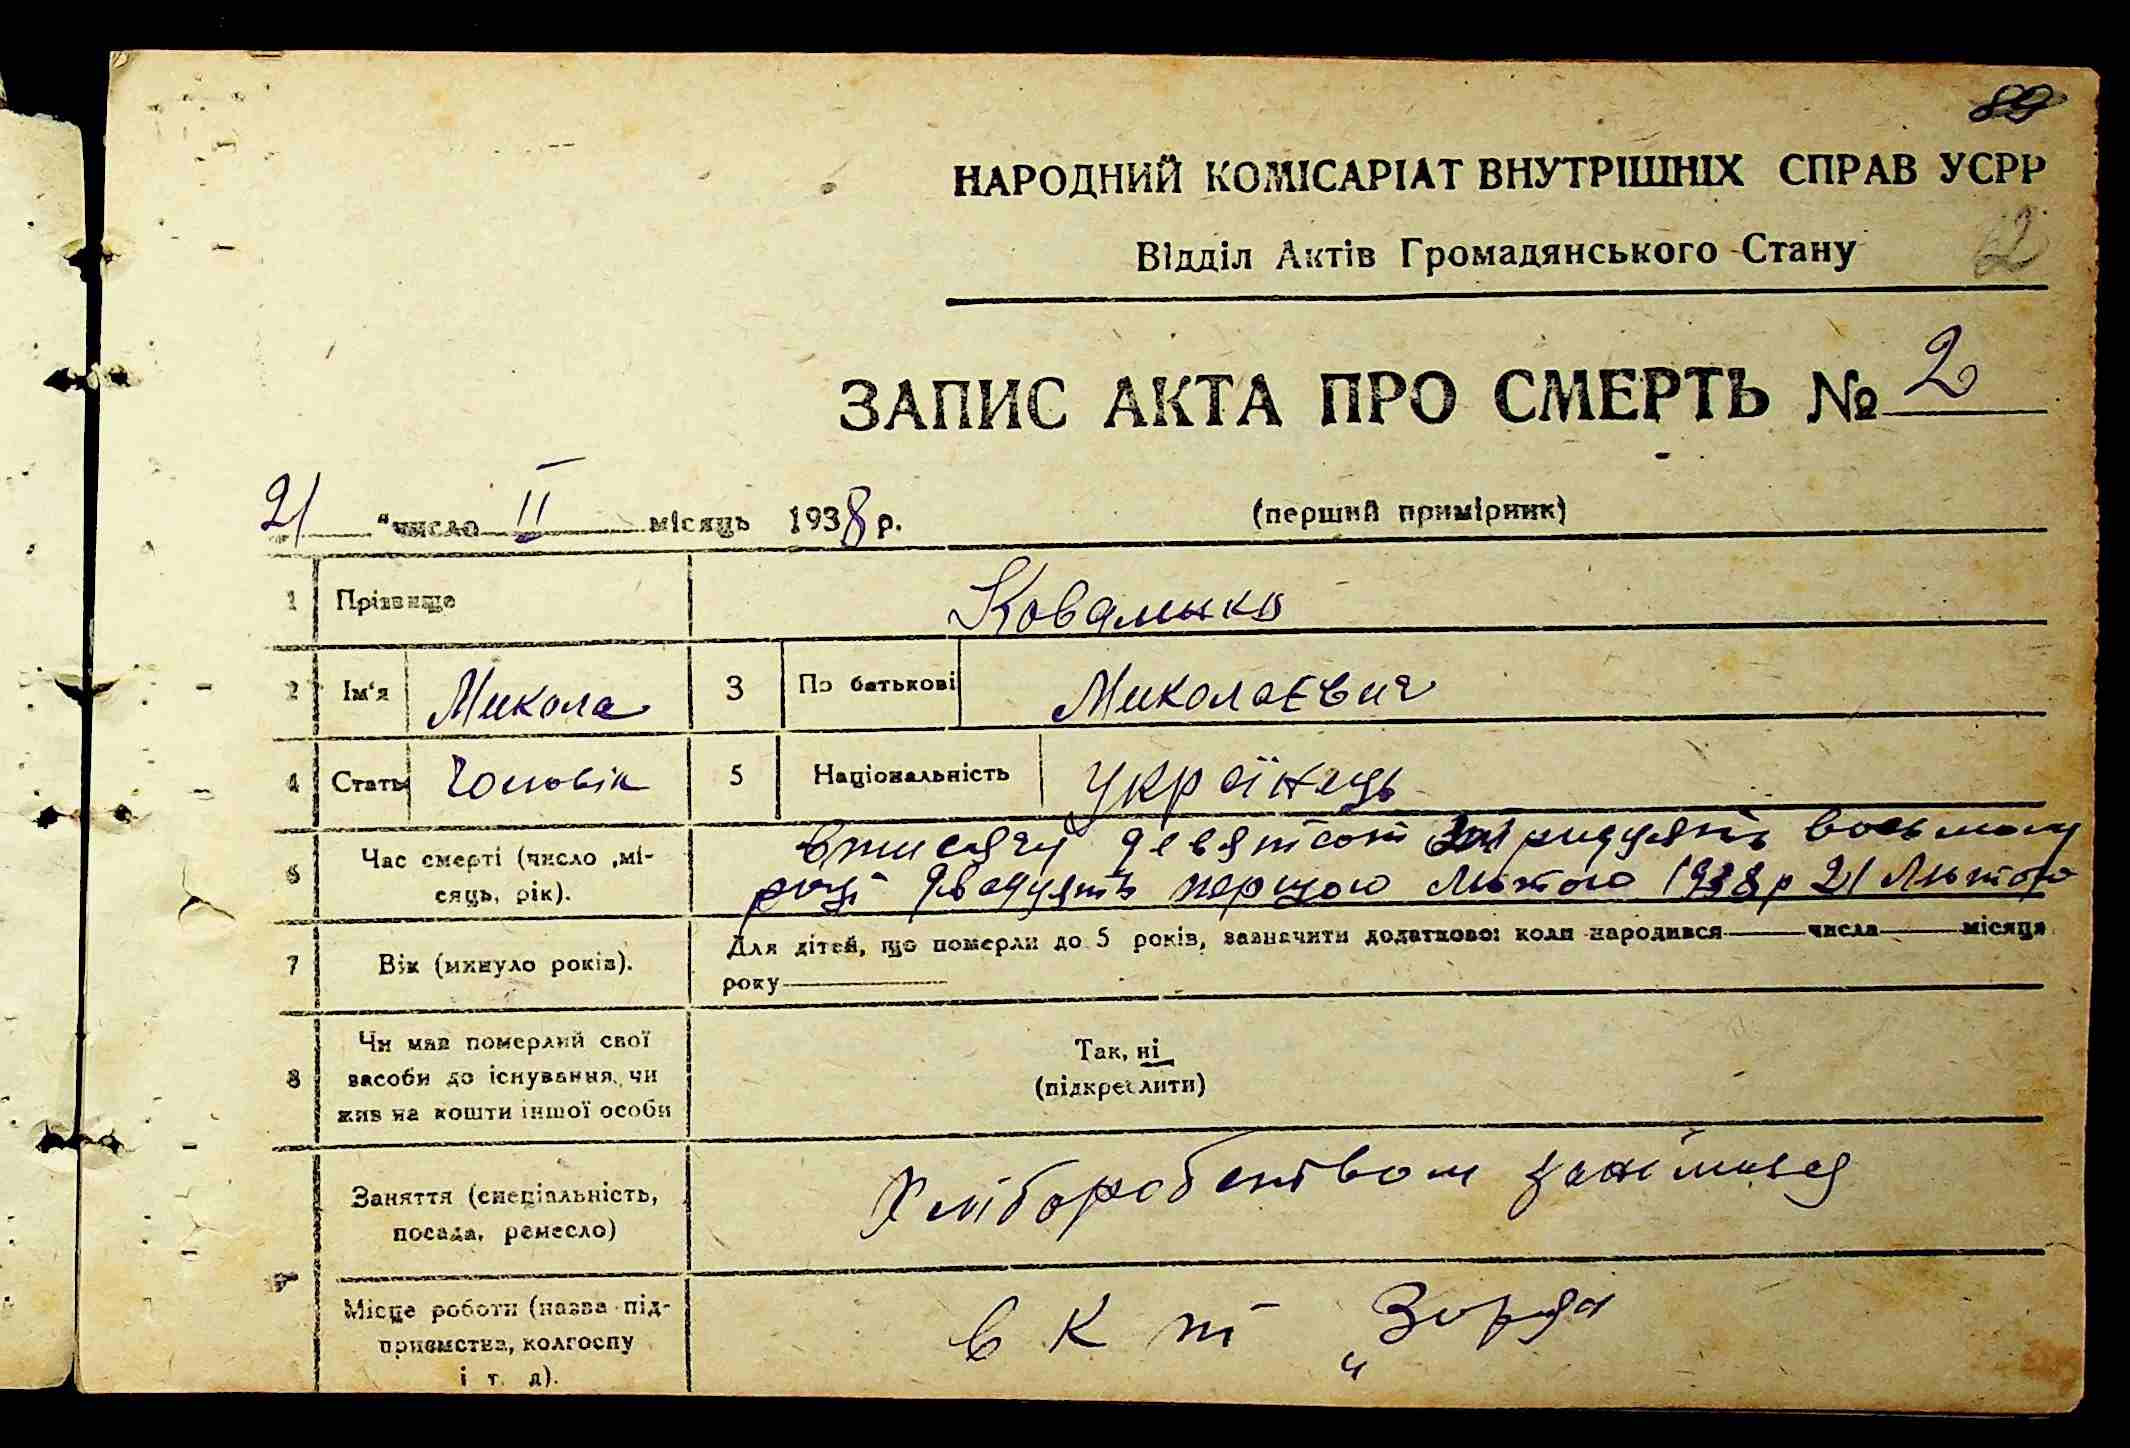 89
НАРОДНИЙ КОМІСАРІАТ ВНУТРІШНІХ СПРАВ УСРР
Відділ Актів Громадянського Стану
62
ЗАПИС АКТА ПРО СМЕРТЬ № 2
21 "число II місяць 1938 р. (перший примірник)
1 Прізвище Ковалынко
2 Ім'я Микола 3 По батькові Миколаєвич
4 Стать Чоловік 5 Національність Українець
6 Час смерті (число ,мі-
сяць, рік).
втисячу девятсот тридцять восьмому
році двадцять першого Лютого 1938 р 21 Лютого
7 Вік (минуло років).
Для дітей, що померли до 5 років, зазначити додатково: коли народився числа місяця
року
8 Чи мав померлий свої
засоби до існування, чи
жив на кошти іншої особи
Так, ні
(підкреслити)
9
Заняття (спеціальність,
посада, ремесло)
Хліборобством
Місце роботи (назва під-
приємства, колгоспу
і т. д).
в К т „Зоря